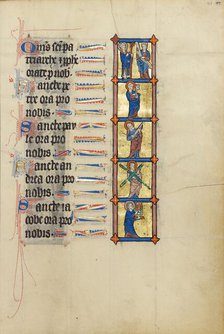 Om̅s sc̅i pa
triarche ⁊ p̅phe
orate p̅ nob̅.
Sancte pe
tre ora pro
nobis.
Sancte pau
le ora pro
nobis.
Sancte an
drea ora pro
nobis.
Sancte ia
cobe ora pro
nobis.